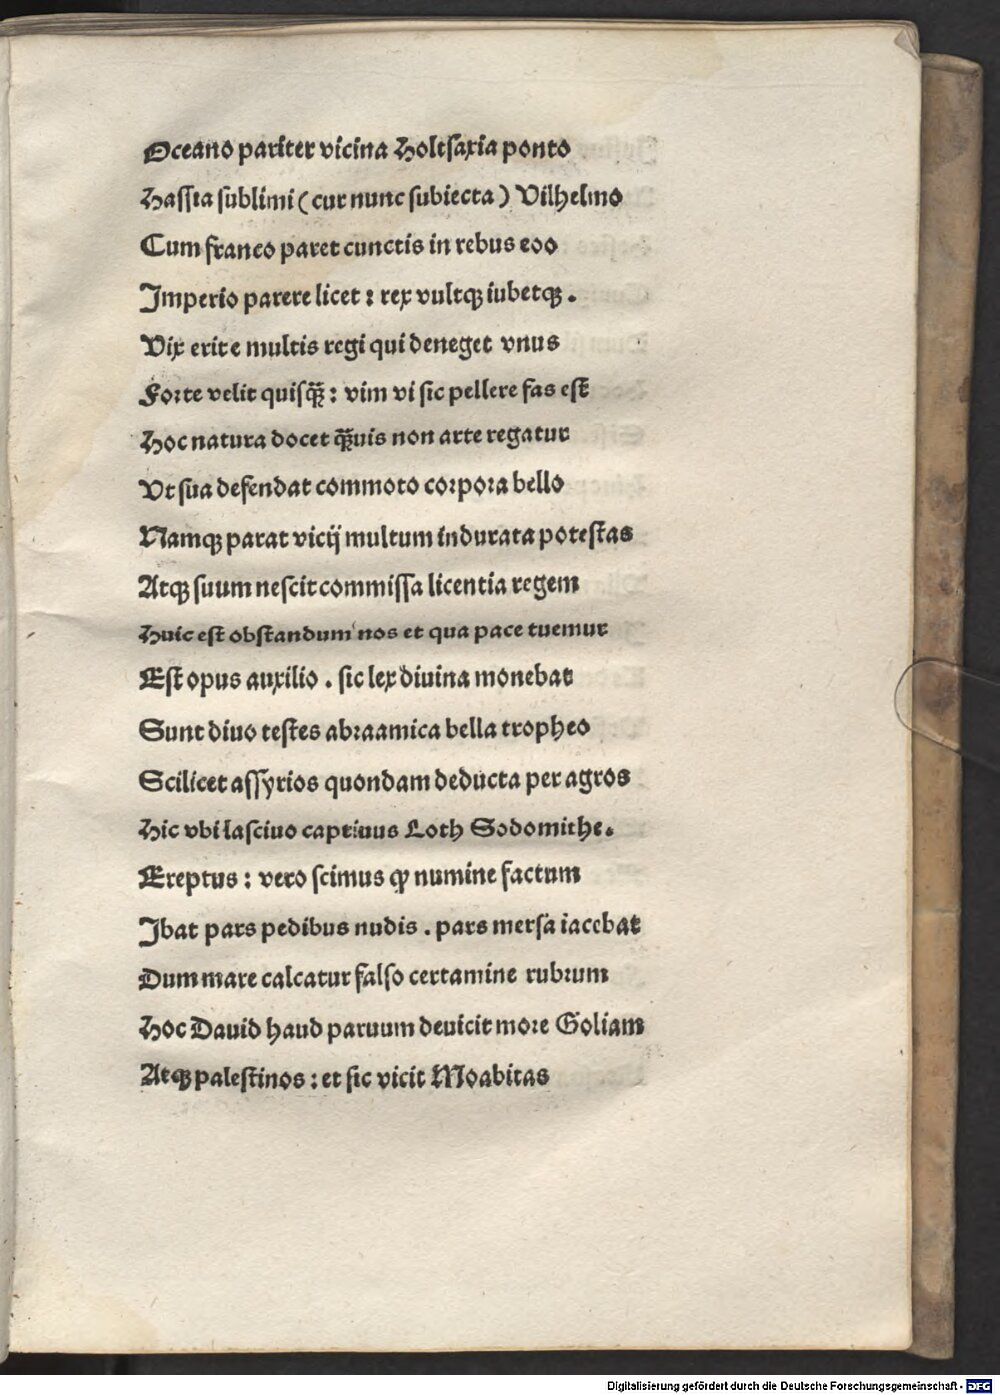 Oceano pariter vicina Holtsaxia ponto
Hassia sublimi (cur nunc subiecta) Vilhelmo
Cum franco paret cunctis in rebus eoo
Imperio parere licet : rex vultqꝫ iubetqꝫ .
Vix erit e multis regi qui deneget vnus
Forte velit quisqꝫ̃ : vim vi sic pellere fas est
Hoc natura docet qꝫ̃uis non arte regatur
Vt sua defendat commoto corpora bello
Namqꝫ parat vicij multum indurata potestas
Atqꝫ suum nescit commissa licentia regem
Huic est obstandum nos et qua pace tuemur
Est opus auxilio . sic lex diuina monebat
Sunt diuo testes abraamica bella tropheo
Scilicet assyrios quondam deducta per agros
Hic vbi lasciuo captiuus Loth Sodomithe.
Ereptus : vero scimus ꝙ numine factum
Ibat pars pedibus nudis . pars mersa iacebat
Dum mare calcatur falso certamine rubrum
Hoc Dauid haud paruum deuicit more Goliam
Atqꝫ palestinos : et sic vicit Moabitas
Digitalisierung gefördert durch die Deutsche Forschungsgemeinschaft - DFG